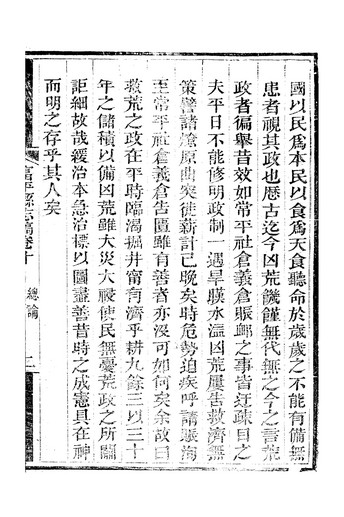 國以民爲本民以食爲天食聽命於歲歲之不能有備無
患者視其政也歷古迄今凶荒饑饉無代無之今之言荒
政者徧舉昔效如常平社倉義倉賑䘏之事皆迂疎目之
夫平日不能修明政制一遇旱暵水溢凶荒屢告救濟無
策譬諸焚原曲突徙薪計已晩矣時危勢迫疾呼請賑洵
至常平社倉義倉告匱雖有善者亦沒可如何矣余故曰
救荒之政在平時臨渴掘井甯有濟乎耕九餘三以三十
年之儲積以備凶荒雖大災大祲使民無憂荒政之所關
詎細故哉緩治本急治標以圖盡善昔時之成憲具在神
而明之存乎其人矣
富平縣志稿卷十 總論